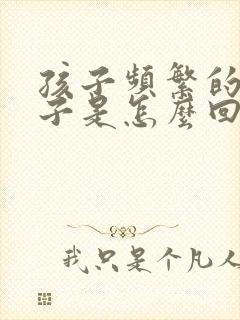 孩子頻繁的
子是怎麼回
我只是个凡人